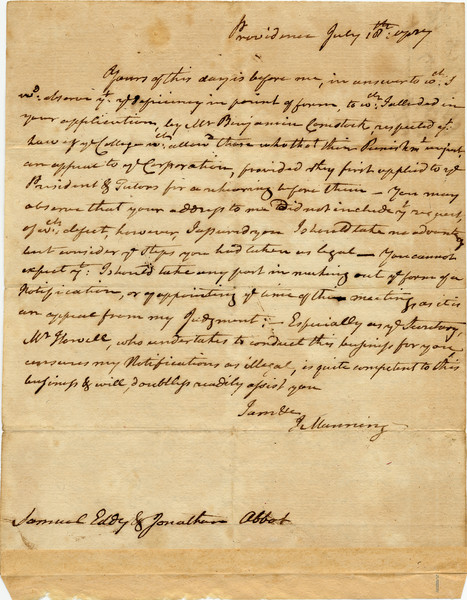 Providence July 18th: 1787
Yours of this day is before me, in answer to wch. I
wd. observe yt. ye deficiency in point of form, to wch. I alluded in
your application, by Mr Benjamin Comstock, respected ye.
Law of ye College wch. allowd those who that their Punishmt. unjust,
an appeal to ye Corporation, provided they first applied to ye
President & Tutors for a rehearing before them — You may
observe that your address to me did not include ye. request,
of wch. defect, however, I assured you I should take no advantage
but consider ye steps you had taken as legal — You cannot
expect yt. I should take any part in making out ye form of a
Notification, or of appointing ye time of the meeting, as it is
an appeal from my Judgment: — Especially as ye Secretary,
Mr Howell, who undertakes to conduct this business for you &
censures my Notifications as illegal, is quite competent to this
business & will, doubtless readily assist you
I am &c
J Manning
Samuel Eddy & Jonathan Abbot